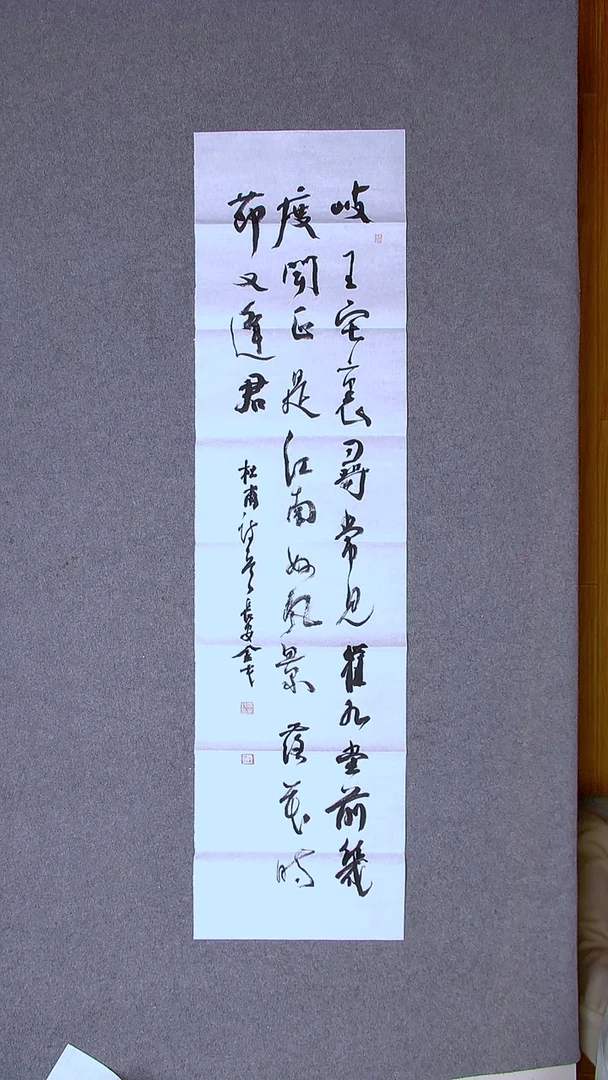 岐王宅裏尋常見崔九堂前幾
度聞正是江南好風景落花時
節又逢君
杜甫詩 長安金